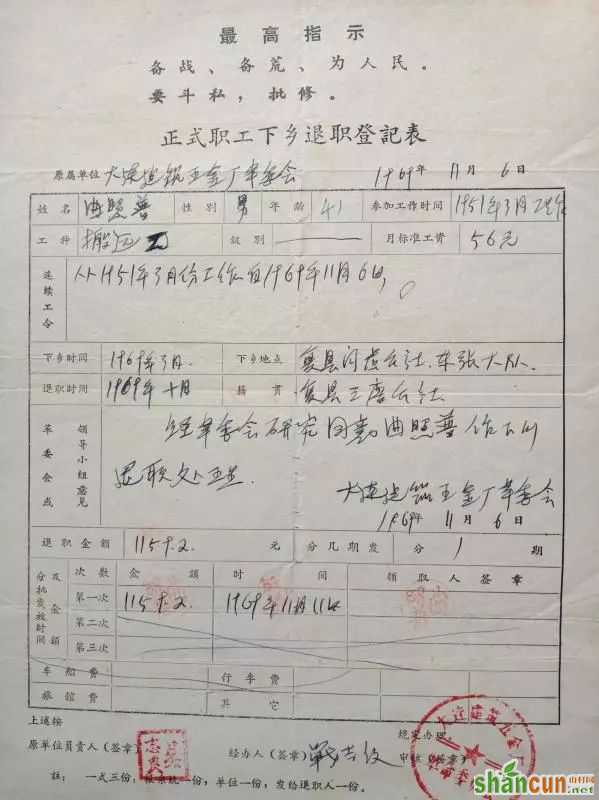 最高指示
备战、备荒、为人民。
要斗私，批修。
正式职工下乡退职登記表
原属单位 大连建筑五金厂革委会 1969年11月6日
姓名 曲照普 性别 男 年龄 41 参加工作时间 1951年3月工作
工种 搬运工 级别 — 月标准工资 56元
连续工令 从1951年3月份工作至1969年11月6日
下乡时间 1969年3月 下乡地点 复县 公社 东张大队
退职时间 1969年十月 籍贯 复县 公社
革委会或领导小组意见 经革委会研究同意曲照普作下乡
退职处理
大连建筑五金厂革委会
1969年11月6日
退职金额 1159.2. 元 分几期发 分1期
分批发放时间及金额 次数 金额 时间 领取人签章
第一次 1159.2. 1969年11月11日
第二次
第三次
车船费 行车费
旅館费 其它
上述按 统案办理。
原单位员责人(签章) 经办人(签章) 审核(签章)
註：一式三份，单位一份，发给退职人一份。
大连建筑五金厂
shancun
山村网
.com